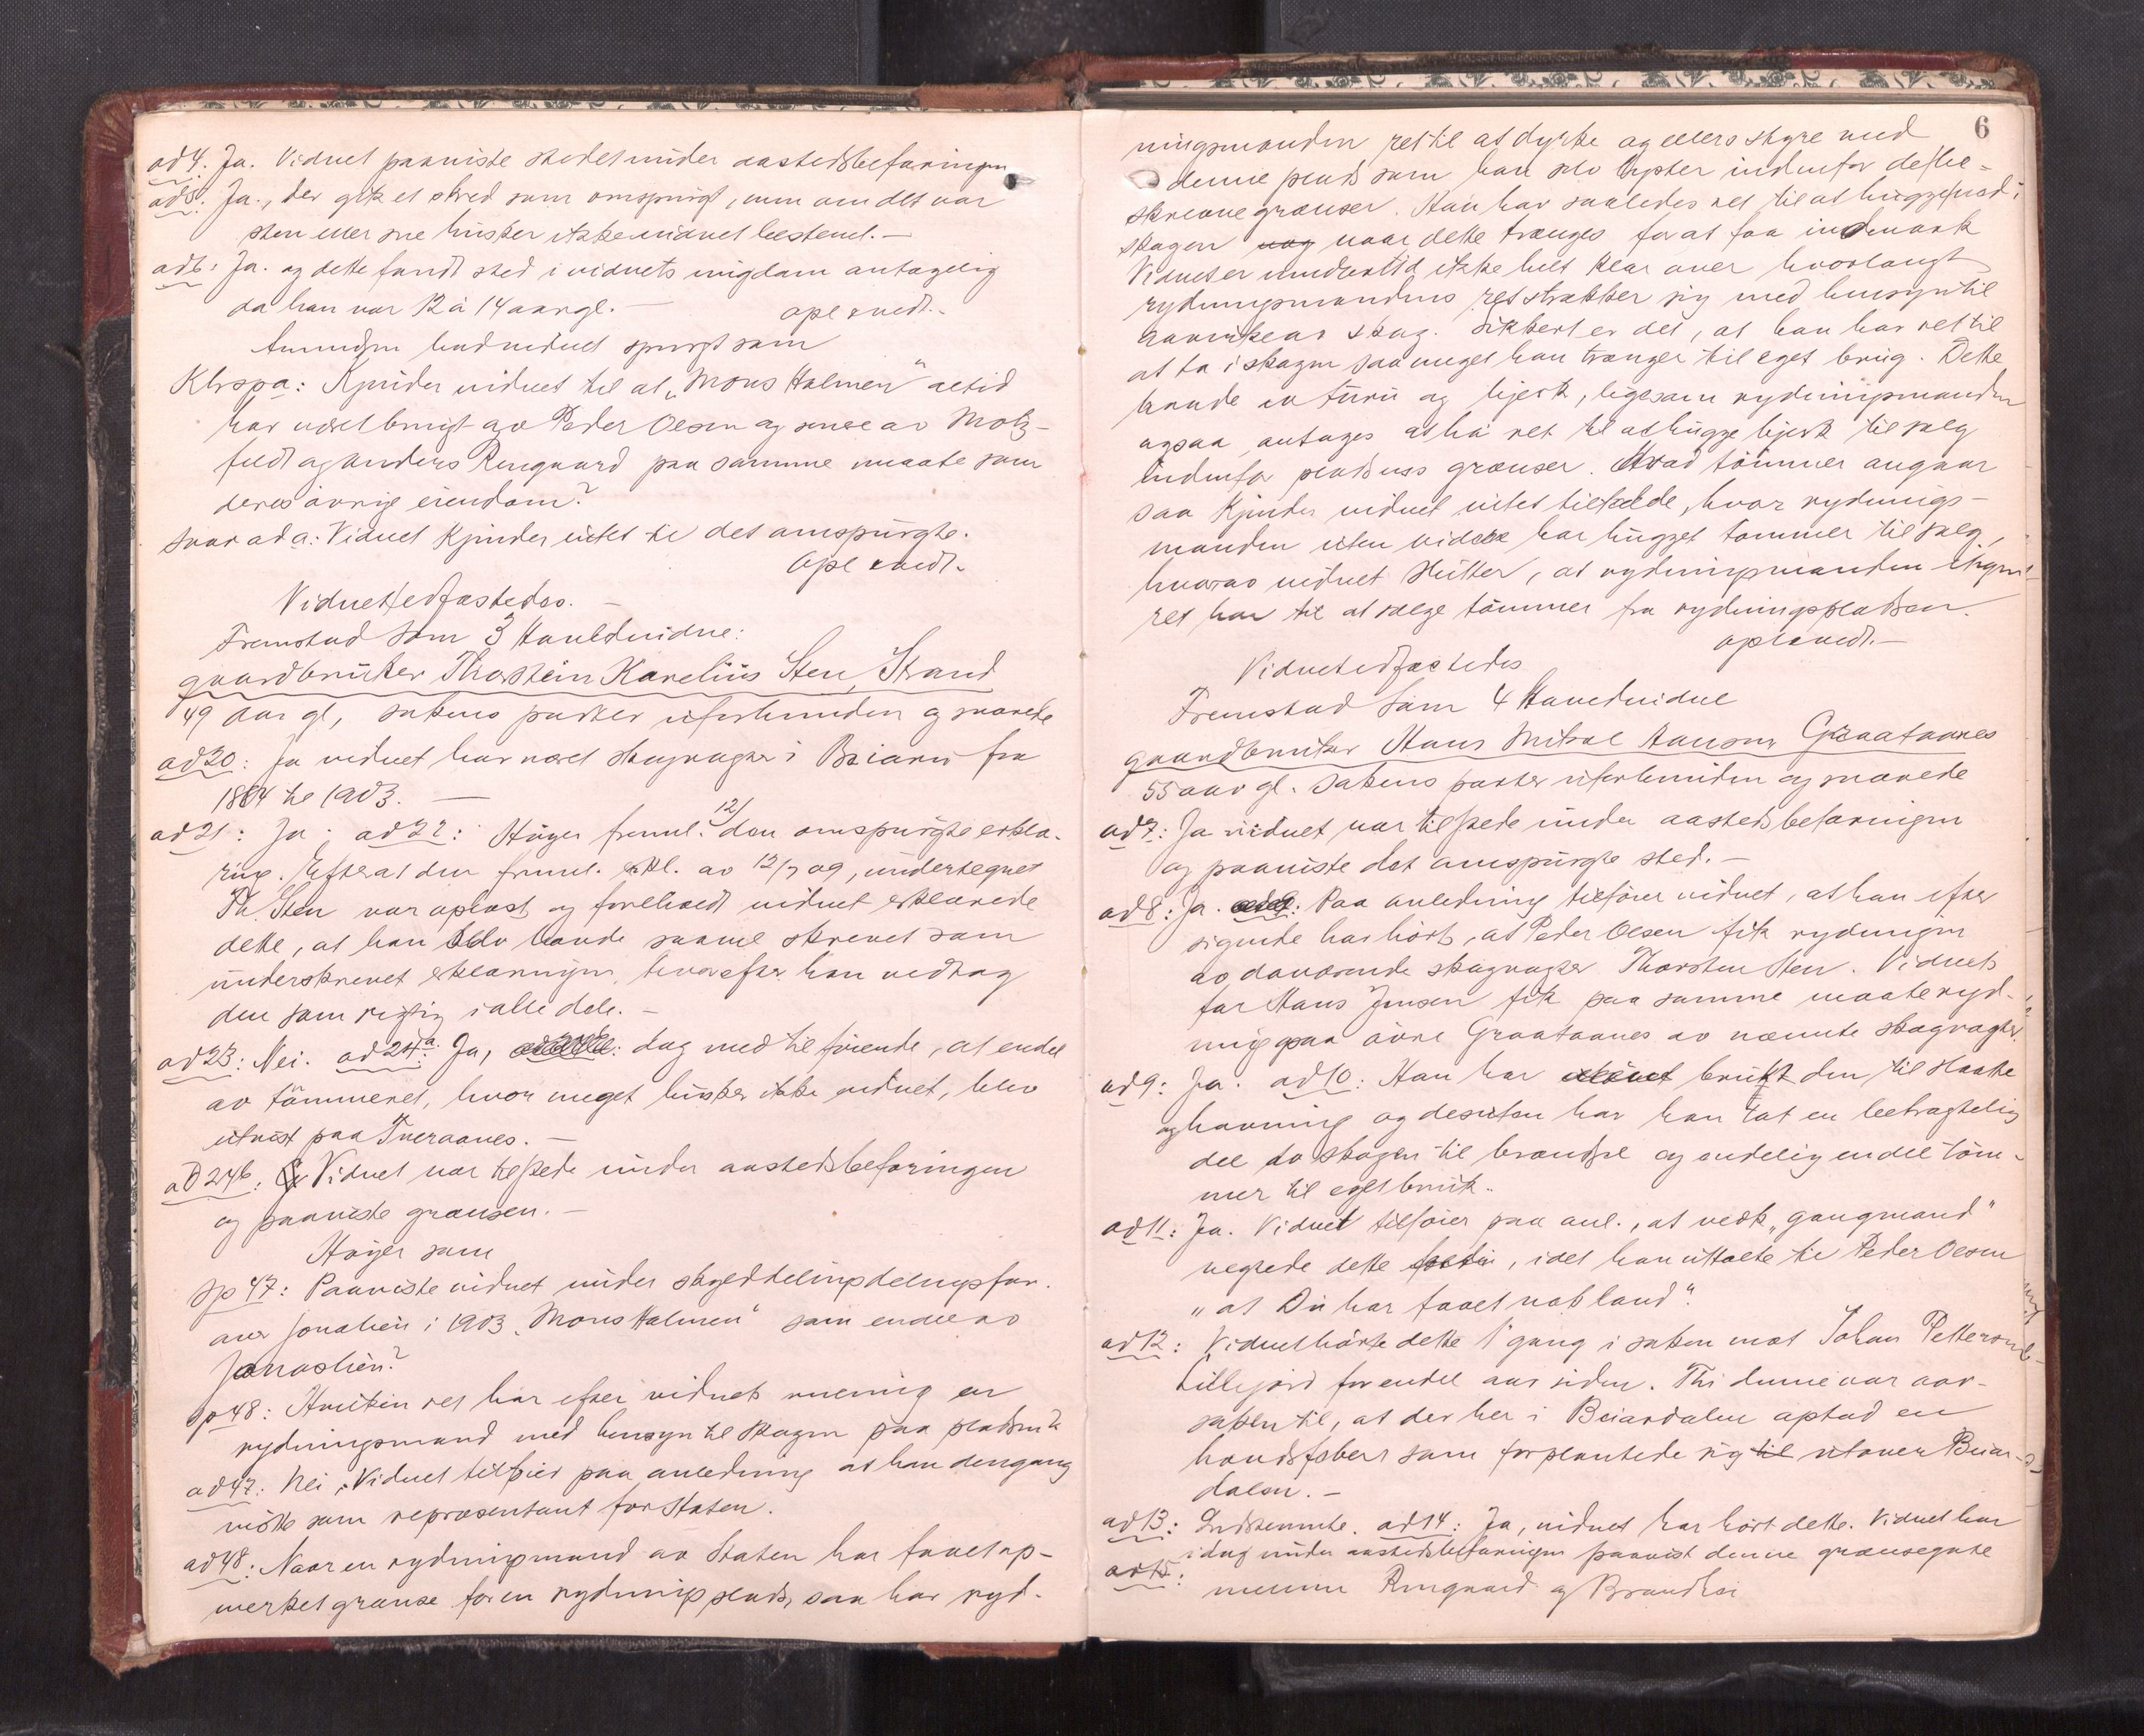 ad 4: Ja. Vidnet paaviste stedet under aastedsbefaringen
ad 5: Ja, der gik et skred som omspurgt, men om det var
sten eller sne husker ikke vidnet bestemt. —
ad 6: Ja. og dette fandt sted i vidnets ungdom antagelig
da han var 12 à 14 aar gl. — opl & vedt. -
Amundsen bad vidnet spurgt som
Ktrspa: Kjender vidnet til at „Mons Holmen" altid
har været brugt av Peder Olsen og senere av Motz-
feldt og Anders Rengaard paa samme maate som
deres øvrige eiendom?
Svar ad a: Vidnet kjender intet til det omspurgte.
Opl & vedt.
Vidnet edfæstedes. —
Fremstod som 3 Hovedvidne:
gaardbruker Thorstein Karelius Sten, Strand
49 aar gl, sakens parter uforbunden og svarede
ad 20: Ja vidnet har været skogvogter i Beiarn fra
1884 til 1903. —
ad 21: Ja. ad 22: Høyer freml. 12/ den omspurgte erklæ-
ring. Efter at den freml. erkl. av 12/7 09, undertegnet
Th. Sten var oplæst og foreholdt vidnet erklærede
dette, at han selv havde saavel skrevet som
underskrevet erklæringen, hvorefter han vedtog
den som rigtig i alle dele. —
ad 23: Nei. ad 24 a: Ja, dog med tilføiende, at endel
av tømmeret, hvor meget husker ikke vidnet, blev
utvist paa Tveraanes. —
ad 24 b: Vidnet var tilstede under aastedsbefaringen
og paaviste grænsen. —
Høyer som
Sp 47: Paaviste vidnet under skyeddelingsforr.
over Jonaslien i 1903 „Mons Holmen" som endel av
Jonaslien?
Sp 48: Hvilken ret har efter vidnets mening en
rydningsmand med hensyn til skogen paa pladsen?
ad 47: Nei, Vidnet tilføier paa anledning at han dengang
møtte som repræsentant for Staten.
ad 48: Naar en rydningsmand av Staten har faaet op-
merket grænse for en rydningsplads, saa har ryd-
6
ningsmanden ret til at dyrke og ellers styre med
denne plads som han selv lyster indenfor de be-
skrevne grænser. Han har saaledes ret til at hugge ned i
skogen naar dette trænges for at faa indmark
Vidnet er imidlertid ikke helt klar over hvorlangt
rydningsmandens ret strækker sig med hensyn til
skog. Sikkert er det, at han har ret til
at ta i skogen saa meget han trænger til eget brug. Dette
baade av furu og bjerk, ligesom rydningsmanden
ogsaa antages at ha ret til at hugge bjerk til salg
indenfor pladsens grænser. Hvad tømmer angaar
saa kjender vidnet intet tilfælde, hvor rydnings-
manden uten videre har hugget tømmer til salg,
hvorav vidnet slutter, at rydningsmanden ingen
ret har til at sælge tømmer fra rydningspladsen.
opl & vedt. —
Vidnet edfæstedes
Fremstod som 4 Hovedvidne
gaardbruker Hans Mikal Hansen Graataanes
55 aar gl. sakens parter uforbunden og svarede
ad 7: Ja vidnet var tilstede under aastedsbefaringen
og paaviste det omspurgte sted. —
ad 8: Ja. Paa anledning tilføier vidnet, at han efter
sigende har hørt, at Peder Olsen fik rydningen
av daværende skogvogter Thorsten Sten. Vidnets
far Hans Jensen fik paa samme maate ryd-
ning paa øvre Graataanes av nævnte skogvogter.
ad 9: Ja. ad 10: Han har brukt den til slaatte
og havning og desuten har han tat en betragtelig
del av skogen til brændsel og endelig endel tøm-
mer til eget bruk.
ad 11: Ja. Vidnet tilføier paa anl., at vedk „gangmand"
negtede dette, idet han uttalte til Peder Olsen
„at Du har faaet nok land".
ad 12: Vidnet hørte dette 1' gang i saken mot Johan Petterson
Lillejord for endel aar siden. Thi denne var aar-
saken til, at der her i Beiardalen opstod en
som forplantede sig til utover Beiar-
dalen. —
ad 13: Indskemmte. ad 14: Ja, vidnet har hørt dette. Vidnet har
ad 15: idag under aastedsbefaringen paavist denne grænsegate
mellem Rengaard og Brandlien